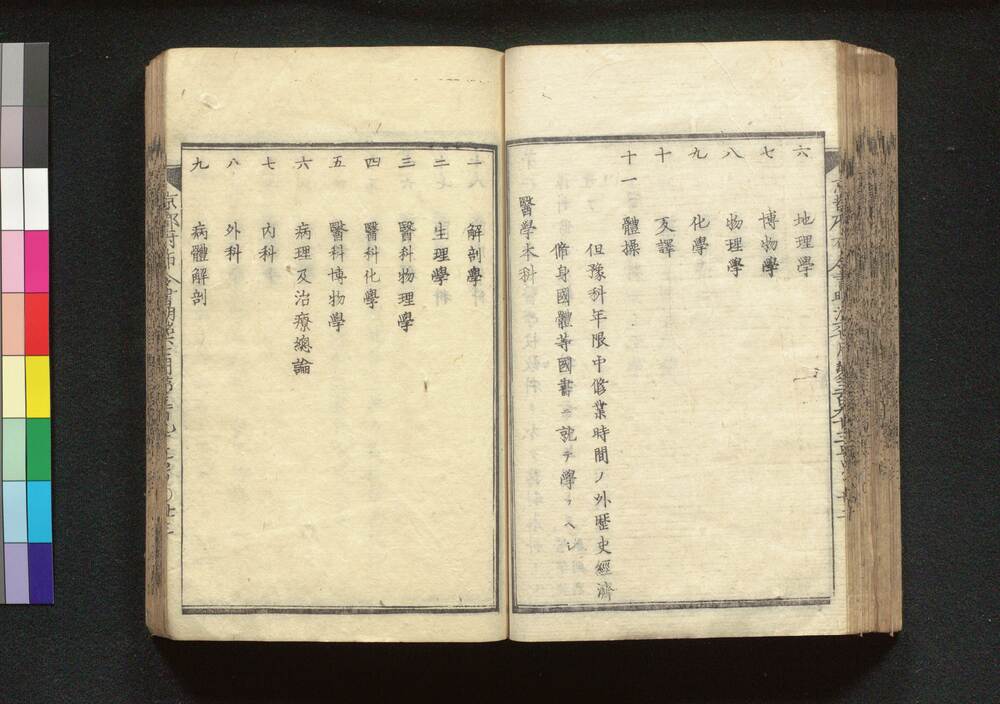 六　地理學
七　博物學
八　物理學
九　化學
十　反譯
十一　體操
但豫科年限中修業時間ノ外歴史經濟
脩身國體等國書ニ就テ學フヘシ
醫學本科
一　解剖學
二　生理學
三　醫科物理學
四　醫科化學
五　醫科博物學
六　病理及治療總論
七　內科
八　外科
九　病體解剖